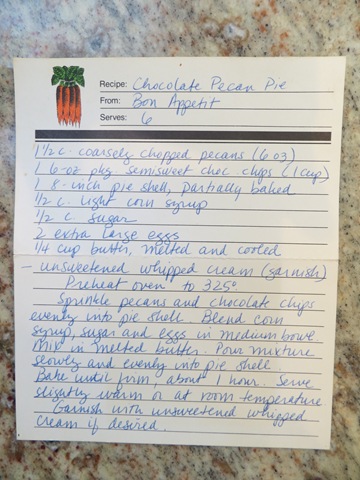 Recipe: Chocolate Pecan Pie
From: Bon Appetit
Serves: 6
1 1/2 c. coarsely chopped pecans (6 oz)
1 6-oz pkg. semisweet choc. chips (1 cup)
1 8-inch pie shell, partially baked
1/2 c. light corn syrup
1/2 c. sugar
2 extra large eggs
1/4 cup butter, melted and cooled
- unsweetened whipped cream (garnish)
Preheat oven to 325°
Sprinkle pecans and chocolate chips
evenly into pie shell. Blend corn
syrup, sugar and eggs in medium bowl.
Mix in melted butter. Pour mixture
slowly and evenly into pie shell.
Bake until firm, about 1 hour. Serve
slightly warm or at room temperature
Garnish with unsweetened whipped
cream if desired.